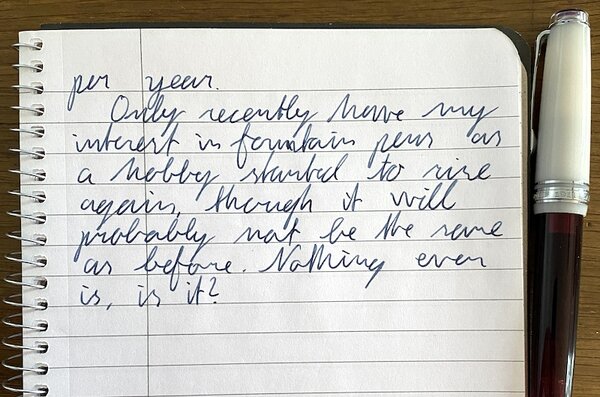 per year.
Only recently have my
interest in fountain pens as
a hobby started to rise
again, though it will
probably not be the same
as before. Nothing ever
is, is it?